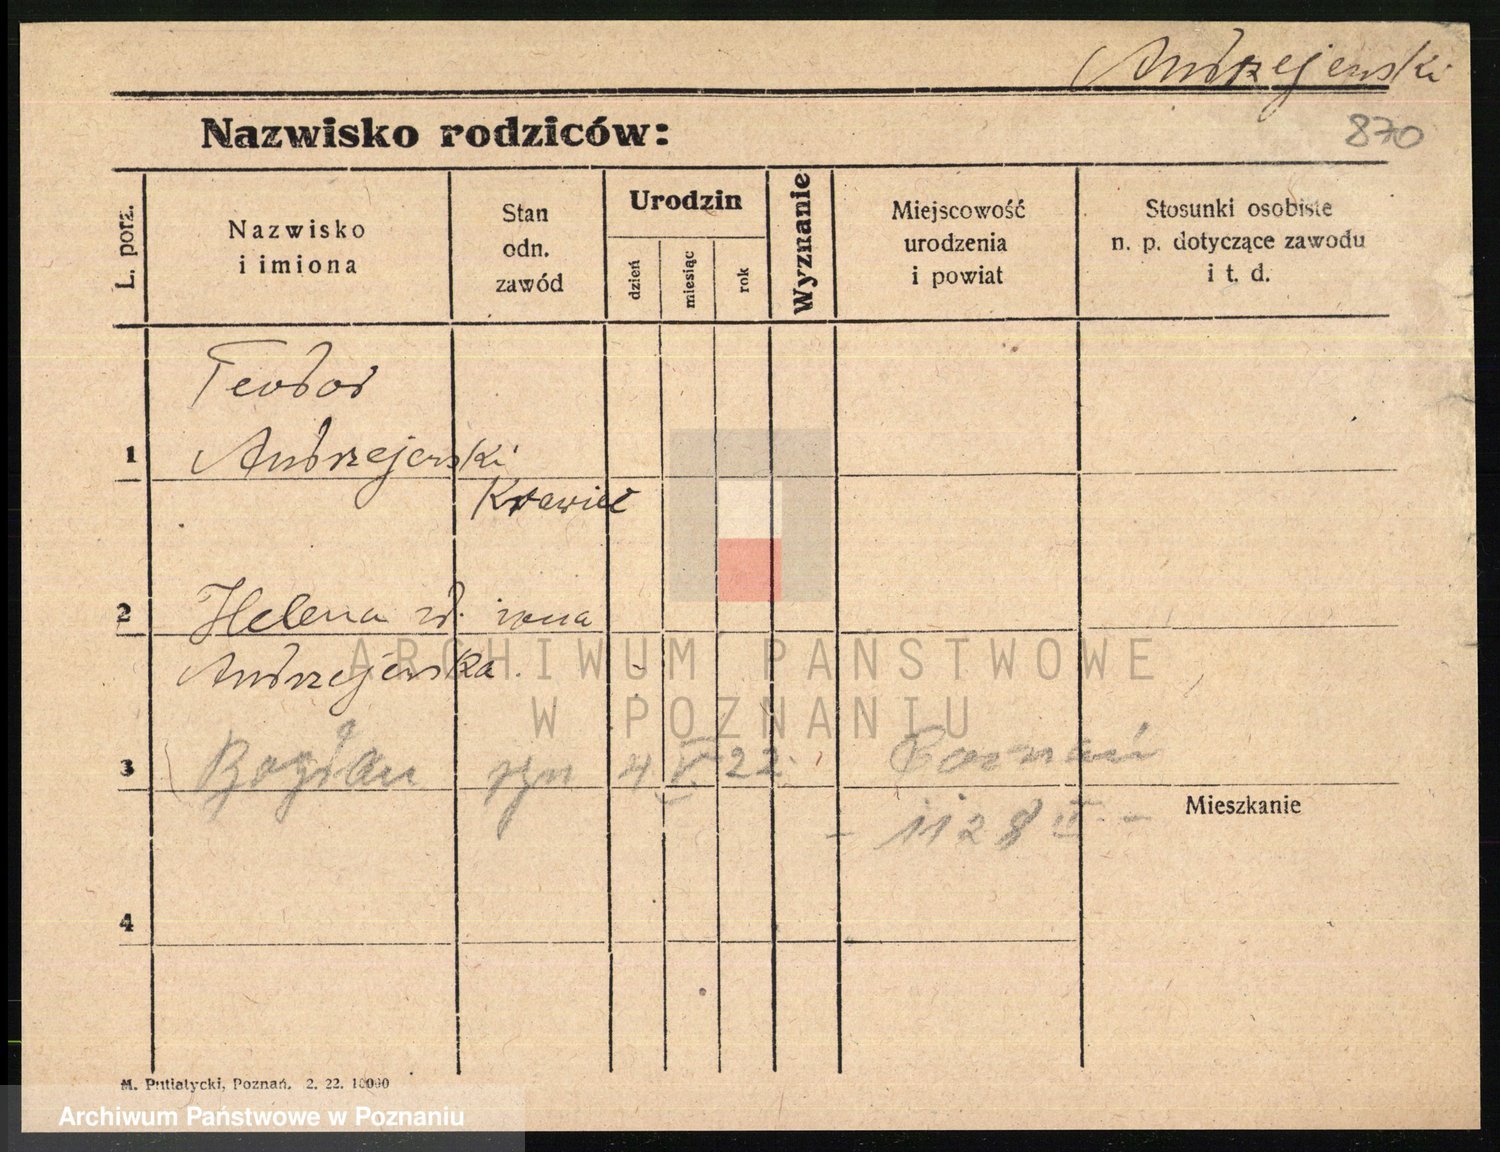 Andrzejewski
870
Nazwisko rodziców:
L. porz.
Nazwisko
i imiona
Stan
odn.
zawód
Urodzin
dzień
miesiąc
rok
Wyznanie
Miejscowość
urodzenia
i powiat
Stosunki osobiste
n. p. dotyczące zawodu
i t. d.
Teodor
1 Andrzejewski
Krawiec
2 Helena
Andrzejewska
3 Bogdan syn 4 V. 22. Poznań
- 1128 II -
Mieszkanie
4
ARCHIWUM PAŃSTWOWE
W POZNANIU
M. Putiatycki, Poznań. 2. 22. 10000
Archiwum Państwowe w Poznaniu